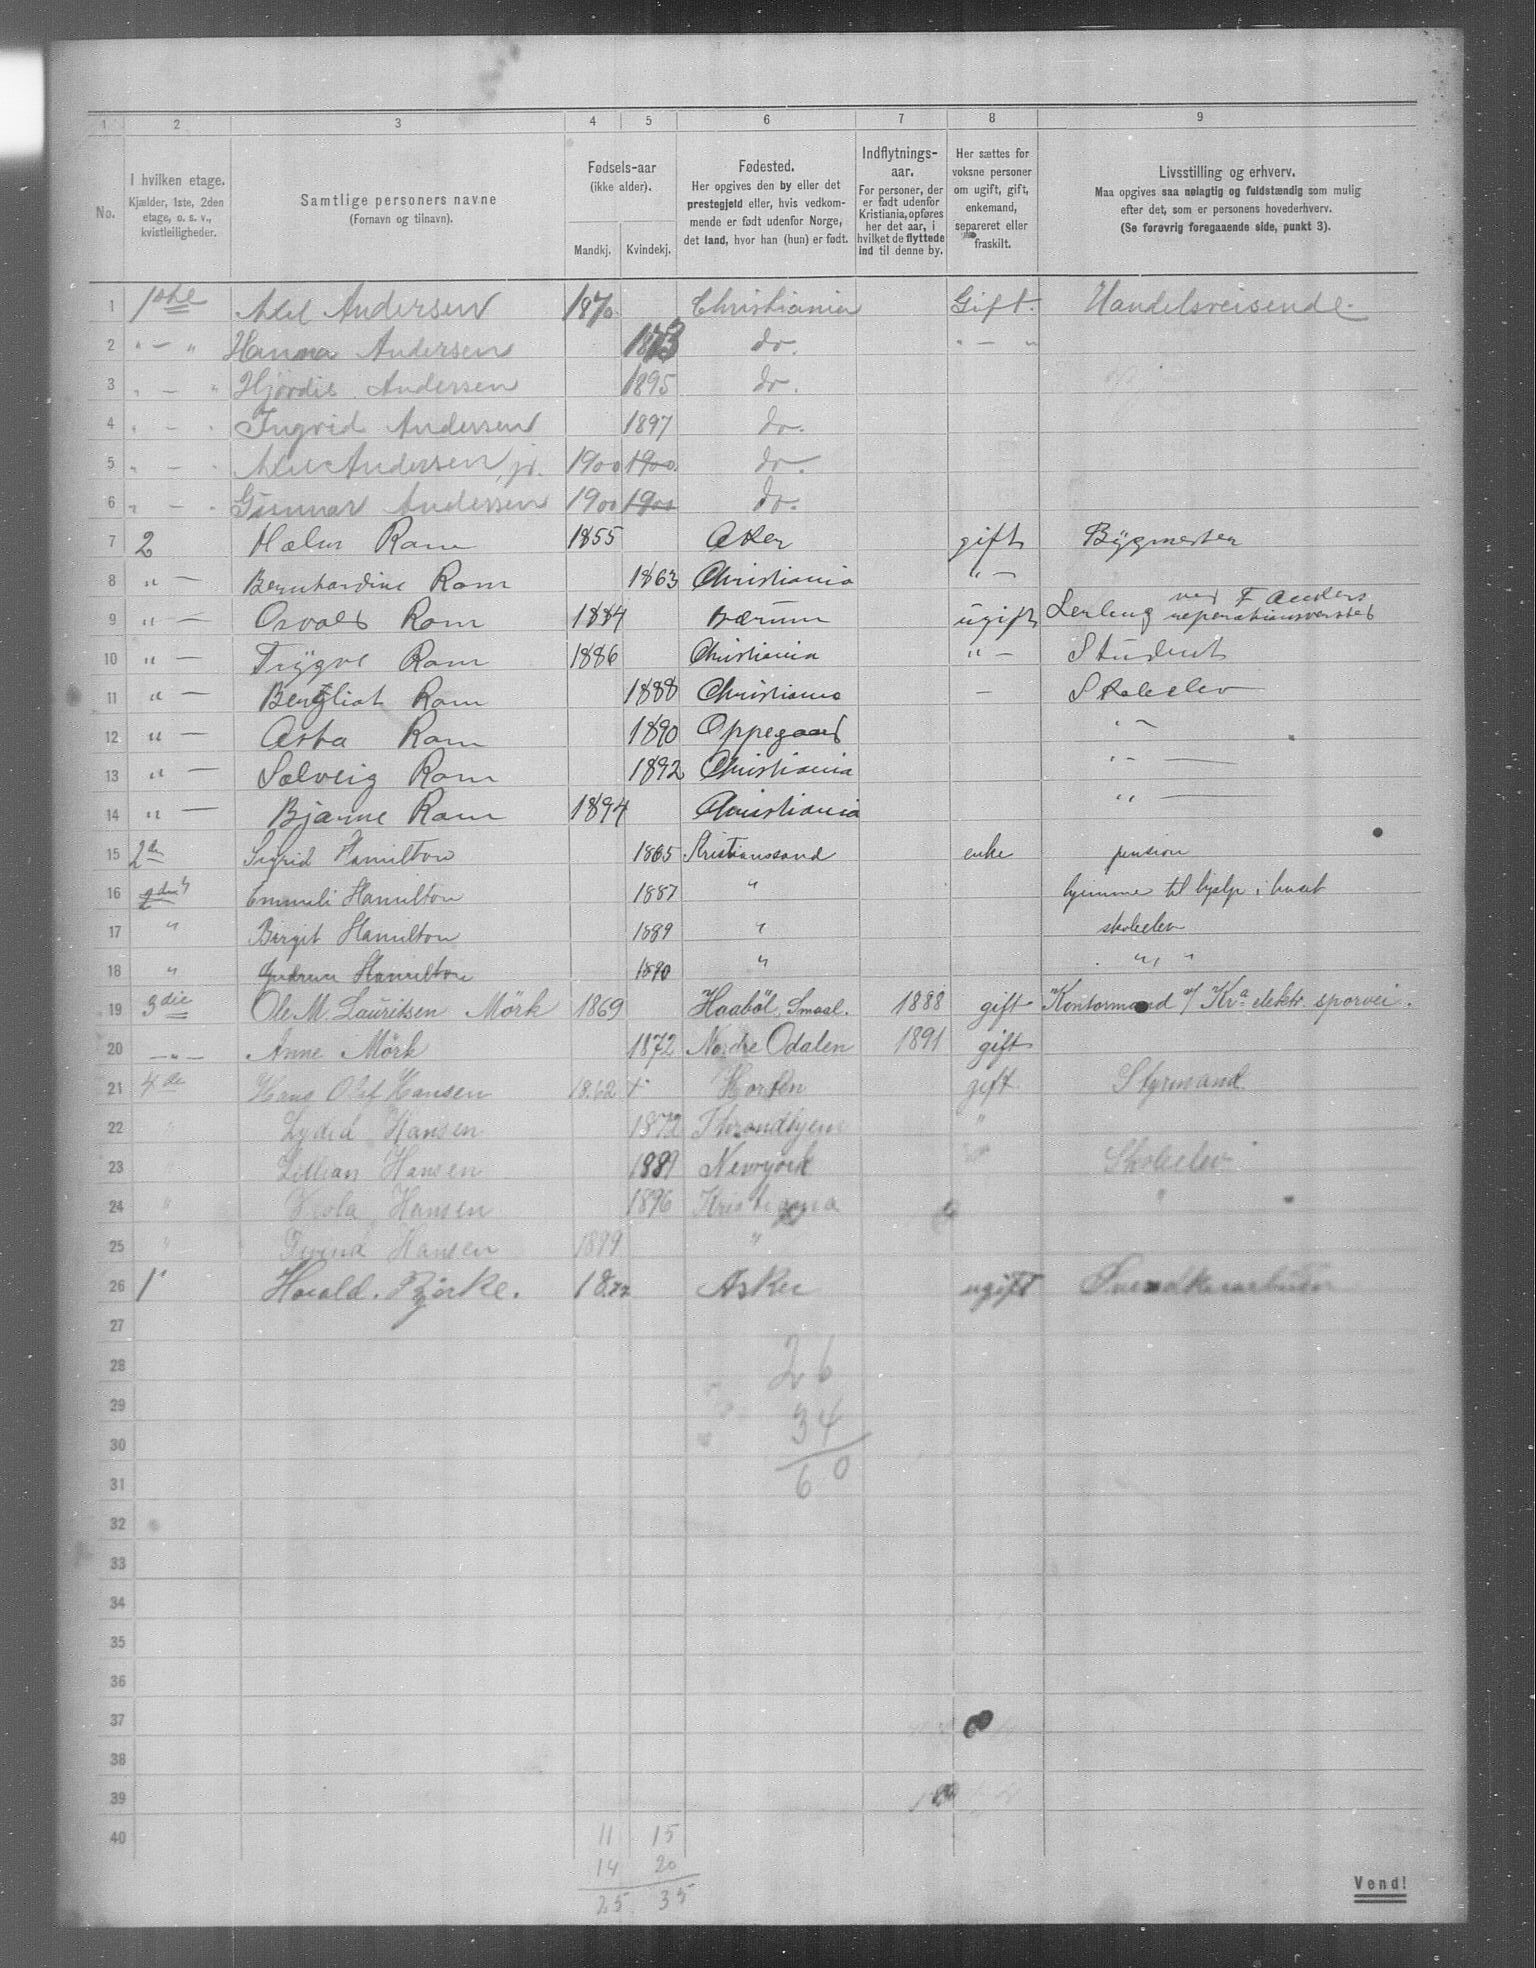 1 2 3 4 5 6 7 8 9
No.
I hvilken etage.
Kjælder, 1ste, 2den
etage, o. s. v.,
kvistleiligheder.
Samtlige personers navne
(Fornavn og tilnavn).
Fødsels-aar
(ikke alder).
Mandkj. Kvindekj.
Fødested.
Her opgives den by eller det
prestegjeld eller, hvis vedkom-
mende er født udenfor Norge,
det land, hvor han (hun) er født.
Indflytnings-
aar.
For personer, der
er født udenfor
Kristiania, opføres
her det aar, i
hvilket de flyttede
ind til denne by.
Her sættes for
voksne personer
om ugift, gift,
enkemand,
separeret eller
fraskilt.
Livsstilling og erhverv.
Maa opgives saa nøiagtig og fuldstændig som mulig
efter det, som er personens hovederhverv.
(Se forøvrig foregaaende side, punkt 3).
1 1ste Axel Andersen 1870 Christiania Gift. Handelsreisende.
2 " — " Hanna Andersen 1873 do. " — "
3 " — " Hjördis Andersen 1895 do.
4 " — " Ingrid Andersen 1897 do.
5 " — " Axel Andersen, jr. 1900 1900 do.
6 " — " Gunnar Andersen 1900 1900 do.
7 2 Ram 1855 Aker gift Bygmester
8 " — Bernhardine Ram 1863 Christiania " —
9 " — Osvald Ram 1884 Bærum ugift Lerling ved F Anders reperationsversted
10 " — Trygve Ram 1886 Christiania " — Student
11 " — Bergliot Ram 1888 Christiania — Skoleelev
12 " — Asta Ram 1890 Oppegaard " —
13 " — Solveig Ram 1892 Christiania " —
14 " — Bjarne Ram 1894 Christiania " —
15 2den Sigrid Hamilton 1865 Kristianssand enke pension
16 2den Emmili Hamilton 1887 " hjemme til hjelp i huset
17 " Birgit Hamilton 1889 " skoleelev
18 " Gudrun Hamilton 1890 " " , "
19 3die Ole M. Lauritsen Mörk 1869 Haaböl, Smaal. 1888 gift Kontormand v/ Kr.a elektr. sporvei.
20 — " — Anne Mörk 1872 Nordre Odalen 1891 gift
21 4de Hans Olaf Hansen 1862 + Horten gift Styrmand
22 " Hansen 1872 Throndhjem "
23 " Lillian Hansen 1889 Newyork " Skoleelev
24 " Viola Hansen 1896 Kristiania "
25 " Hansen 1899 "
26 1 Harald. Björke. 1877 Asker ugift
27
28 26
29 34
30
31 60
32
33
34
35
36
37
38
39
40
11 15
14 20
25 35
Vend!